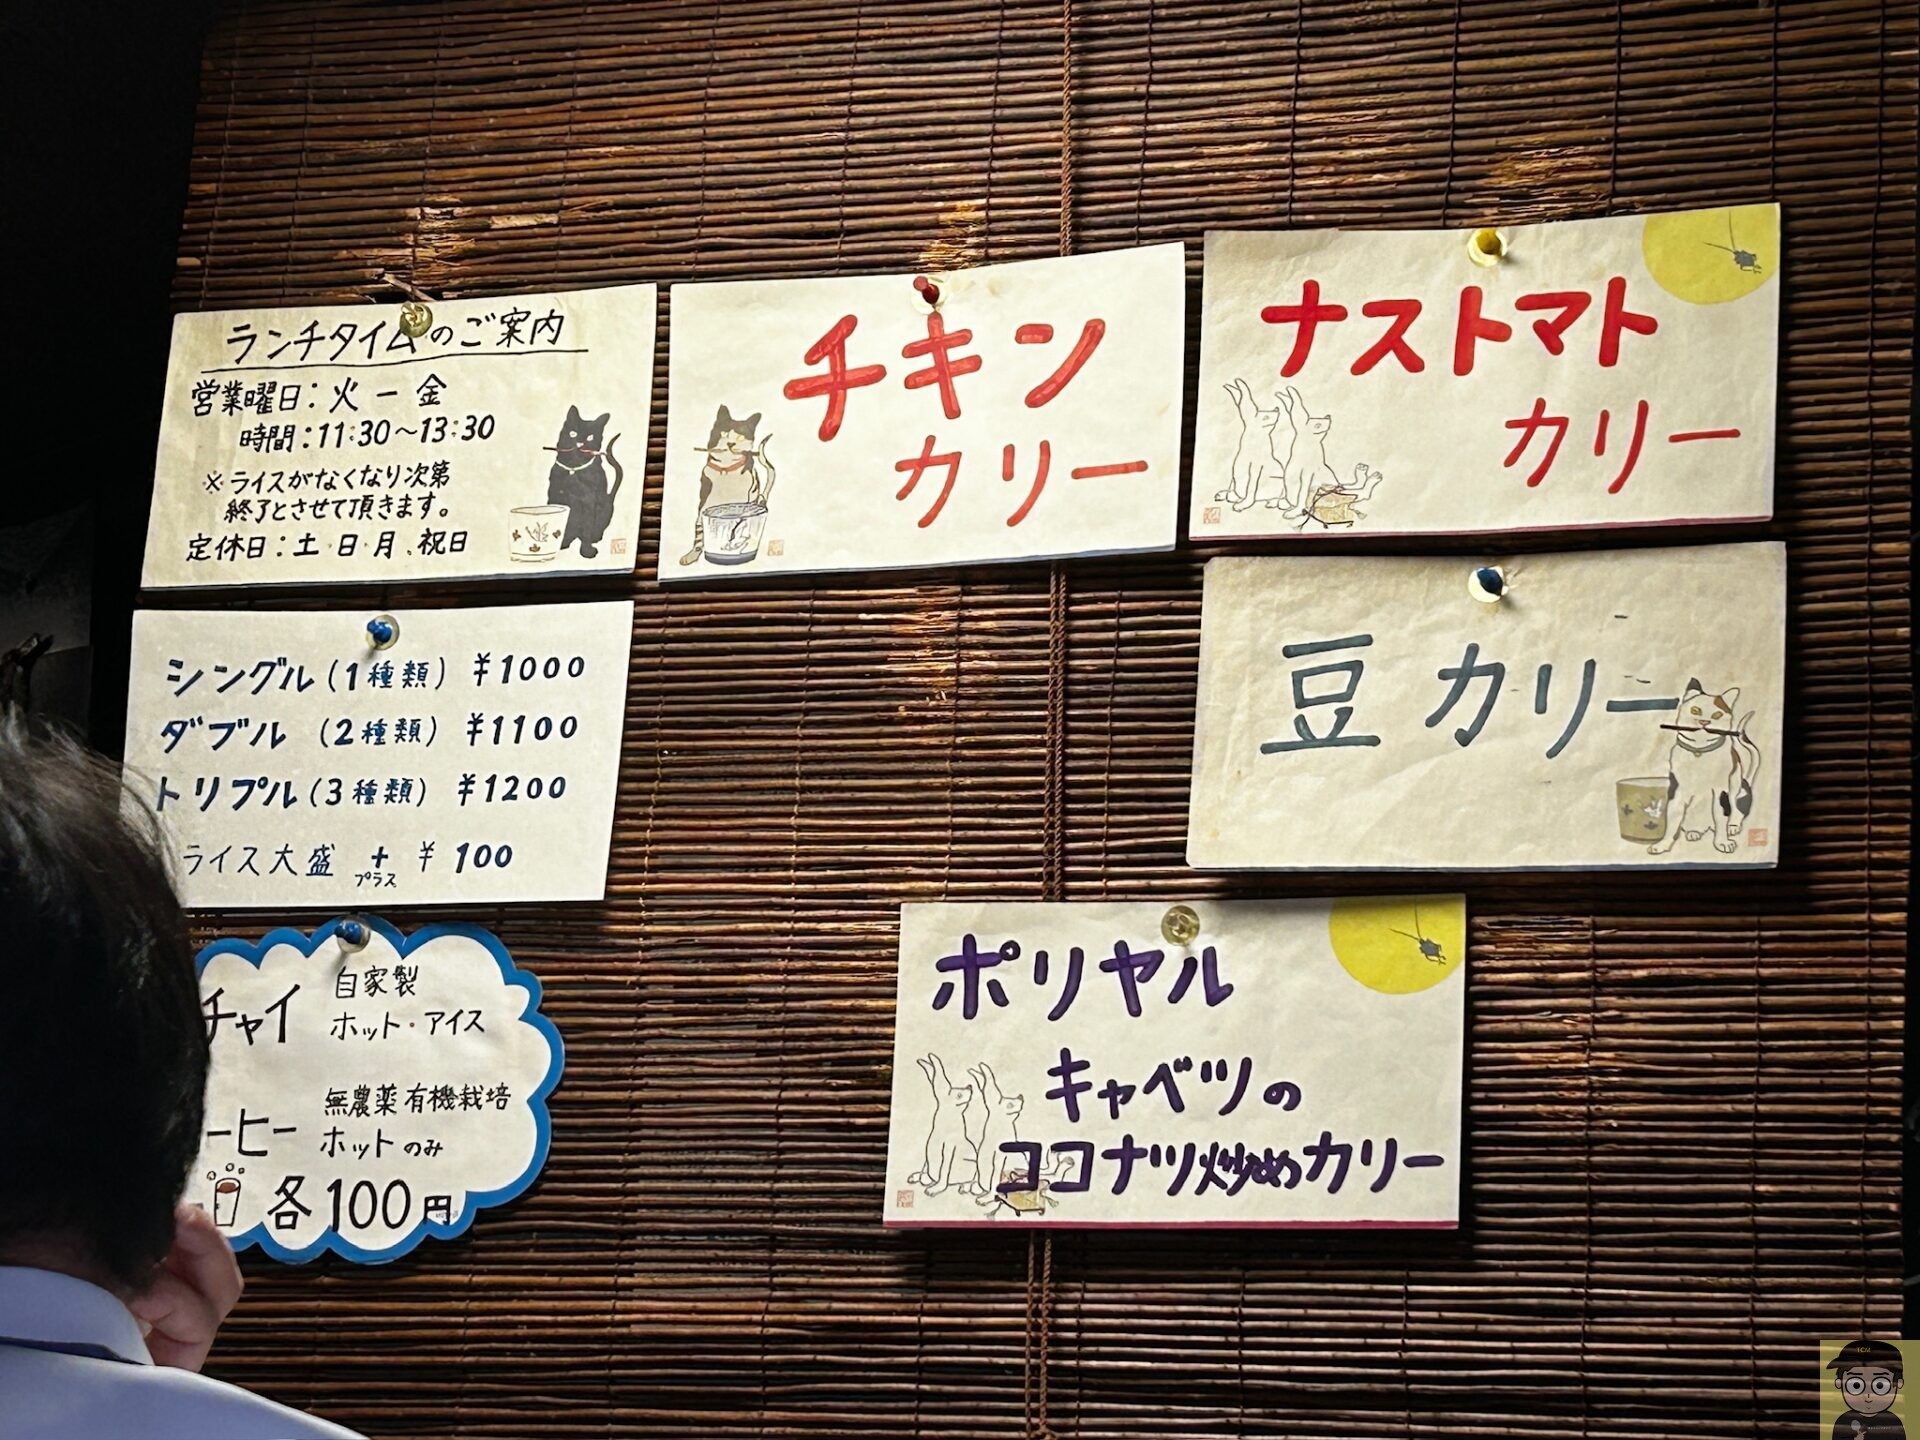 ランチタイムのご案内
営業曜日：火ー金
時間：11:30～13:30
※ライスがなくなり次第
終了とさせて頂きます。
定休日：土・日・月、祝日
チキン
カリー
ナストマト
カリー
シングル（1種類）¥1000
ダブル（2種類）¥1100
トリプル（3種類）¥1200
ライス大盛 + ¥100
プラス
豆カリー
チャイ 自家製
ホット・アイス
ーヒー 無農薬有機栽培
ホットのみ
各100円
ポリヤル
キャベツの
ココナツ炒めカリー
TCM